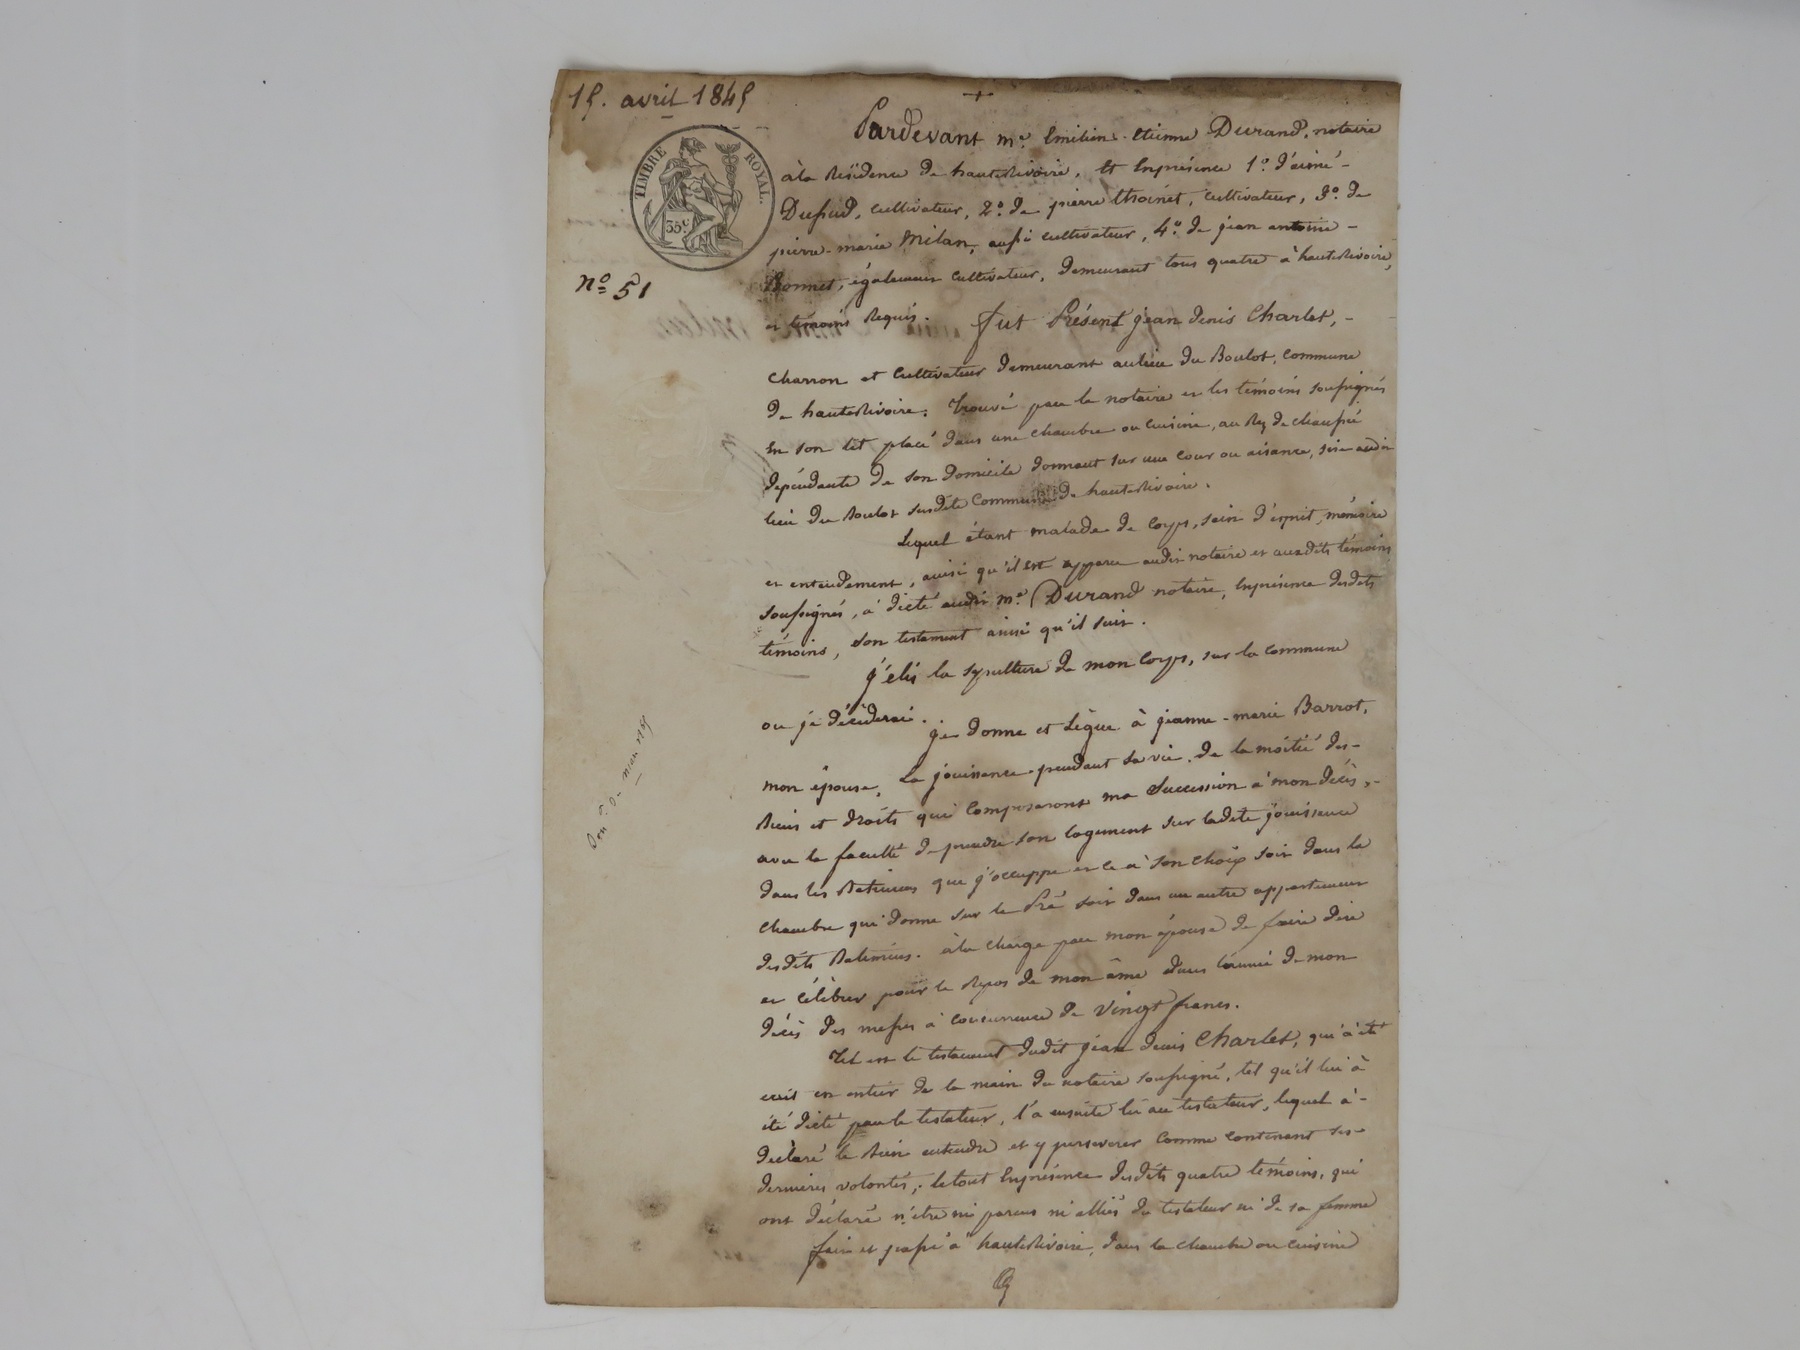 15. avril 1845
TIMBRE ROYAL.
35c
nº 51
Pardevant me. Emilien-Etienne Durand, notaire
à la Résidence de hauterivoire, Et Enprésence 1º. d'aimé-
Dupud, cultivateur, 2º. de pierre thoinet, cultivateur, 3º. de
pierre-marie Milan, aussi cultivateur, 4º. de jean antoine-
Bonnet, également cultivateur, demeurant tous quatre à hauterivoire,
et témoins Requis. fut Présent jean denis Charlet,-
charron et Cultivateur demeurant aulieu du Boulot, commune
de hauterivoire; trouvé par le notaire et les témoins soussignés
En son lit placé dans une chambre ou cuisine, au Rez de chaussé
dépendante de son domicile donnant sur une cour ou aisance, sise audit
lieu du Boulot susdite Commune de hauterivoire.
Lequel étant malade de Corps, sain d'esprit, mémoire
et entendement, ainsi qu'il est apparu audit notaire et auxdits témoins
soussignés, à dicté audit me. Durand notaire, Enprésence desdits
témoins, son testament ainsi qu'il suit.
j'élis la sépulture de mon Corps, sur la commune
ou je décèderai.
je donne et Lègue à jeanne-marie Barrot,
mon épouse, La jouissance pendant sa vie, de la moitié des-
Biens et droits qui Composeront ma Succession à mon décès,-
avec la faculté de prendre son logement sur ladite jouissance
dans les Batimens que j'occuppe et ce à son choix soit dans la
chambre qui donne sur le Pré soit dans un autre appartement
desdits Batimens. à la charge par mon épouse de faire dire
et célèbrer pour le Repos de mon âme dans l'année de mon
décès des messes à concurrence de vingt francs.
Tel est le testament dudit jean denis Charlet, qui à été
écrit en entier de la main du notaire soussigné, tel qu'il lui à
été dicté par le testateur, l'a ensuite lu au testateur, lequel à-
déclaré le Bien entendre et y perseverer comme contenant ses-
dernieres volontés; le tout Enprésence desdits quatre témoins, qui
ont déclaré n'être ni parens ni alliés du testateur ni de sa femme
fait et passé à hauterivoire, dans la chambre ou cuisine